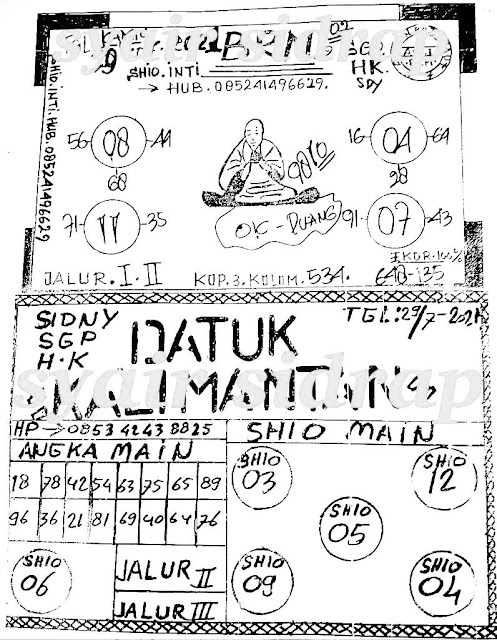 syair sidrap
SHIO.INTI
→ HUB. 085241496629.
SGP.
HK.
SDY
SHIO.INTI.HUB.085241496629
56 08 44
68
16 04 64
98
9870
71 11 35
91 07 43
OK - RUANG
EKOR.100%
JALUR.I.II
KOP.3.KOLOM.534.
640-135
SIDNY
SGP
H.K
TGL:29/7-2021
DATUK
KALIMANTAN
syair sidrap
HP → 0853 4243 8825
ANGKA MAIN
SHIO MAIN
18 78 42 54 63 75 65 89
96 36 21 81 69 40 64 76
SHIO
03
SHIO
12
SHIO
05
SHIO
06
JALUR II
JALUR III
SHIO
09
SHIO
04